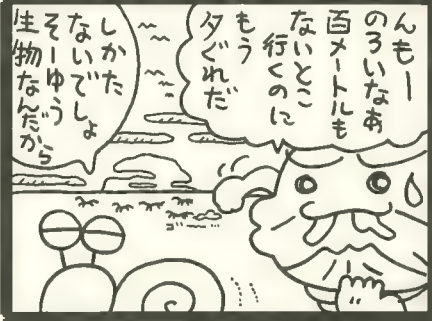 んもー
のろいなあ
百メートルも
ないとこ
行くのに
もう
夕ぐれだ
しかた
ないでしょ
そーゆう
生物なんだから
ゴー